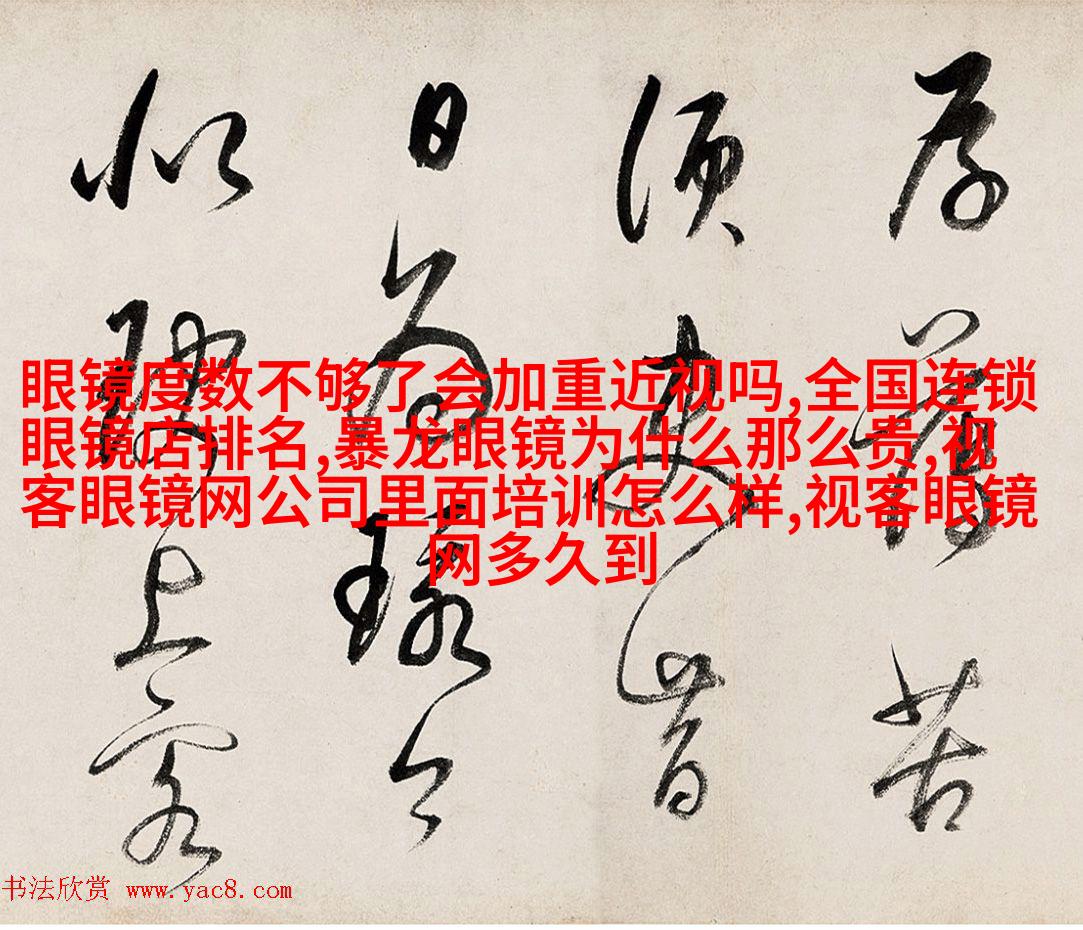 苦
须 昔
日
似 上客
眼镜度数不够了会加重近视吗,全国连锁
眼镜店排名,暴龙眼镜为什么那么贵,视
客眼镜网公司里面培训怎么样,视客眼镜
网多久到
书法欣赏 www.yac8.com